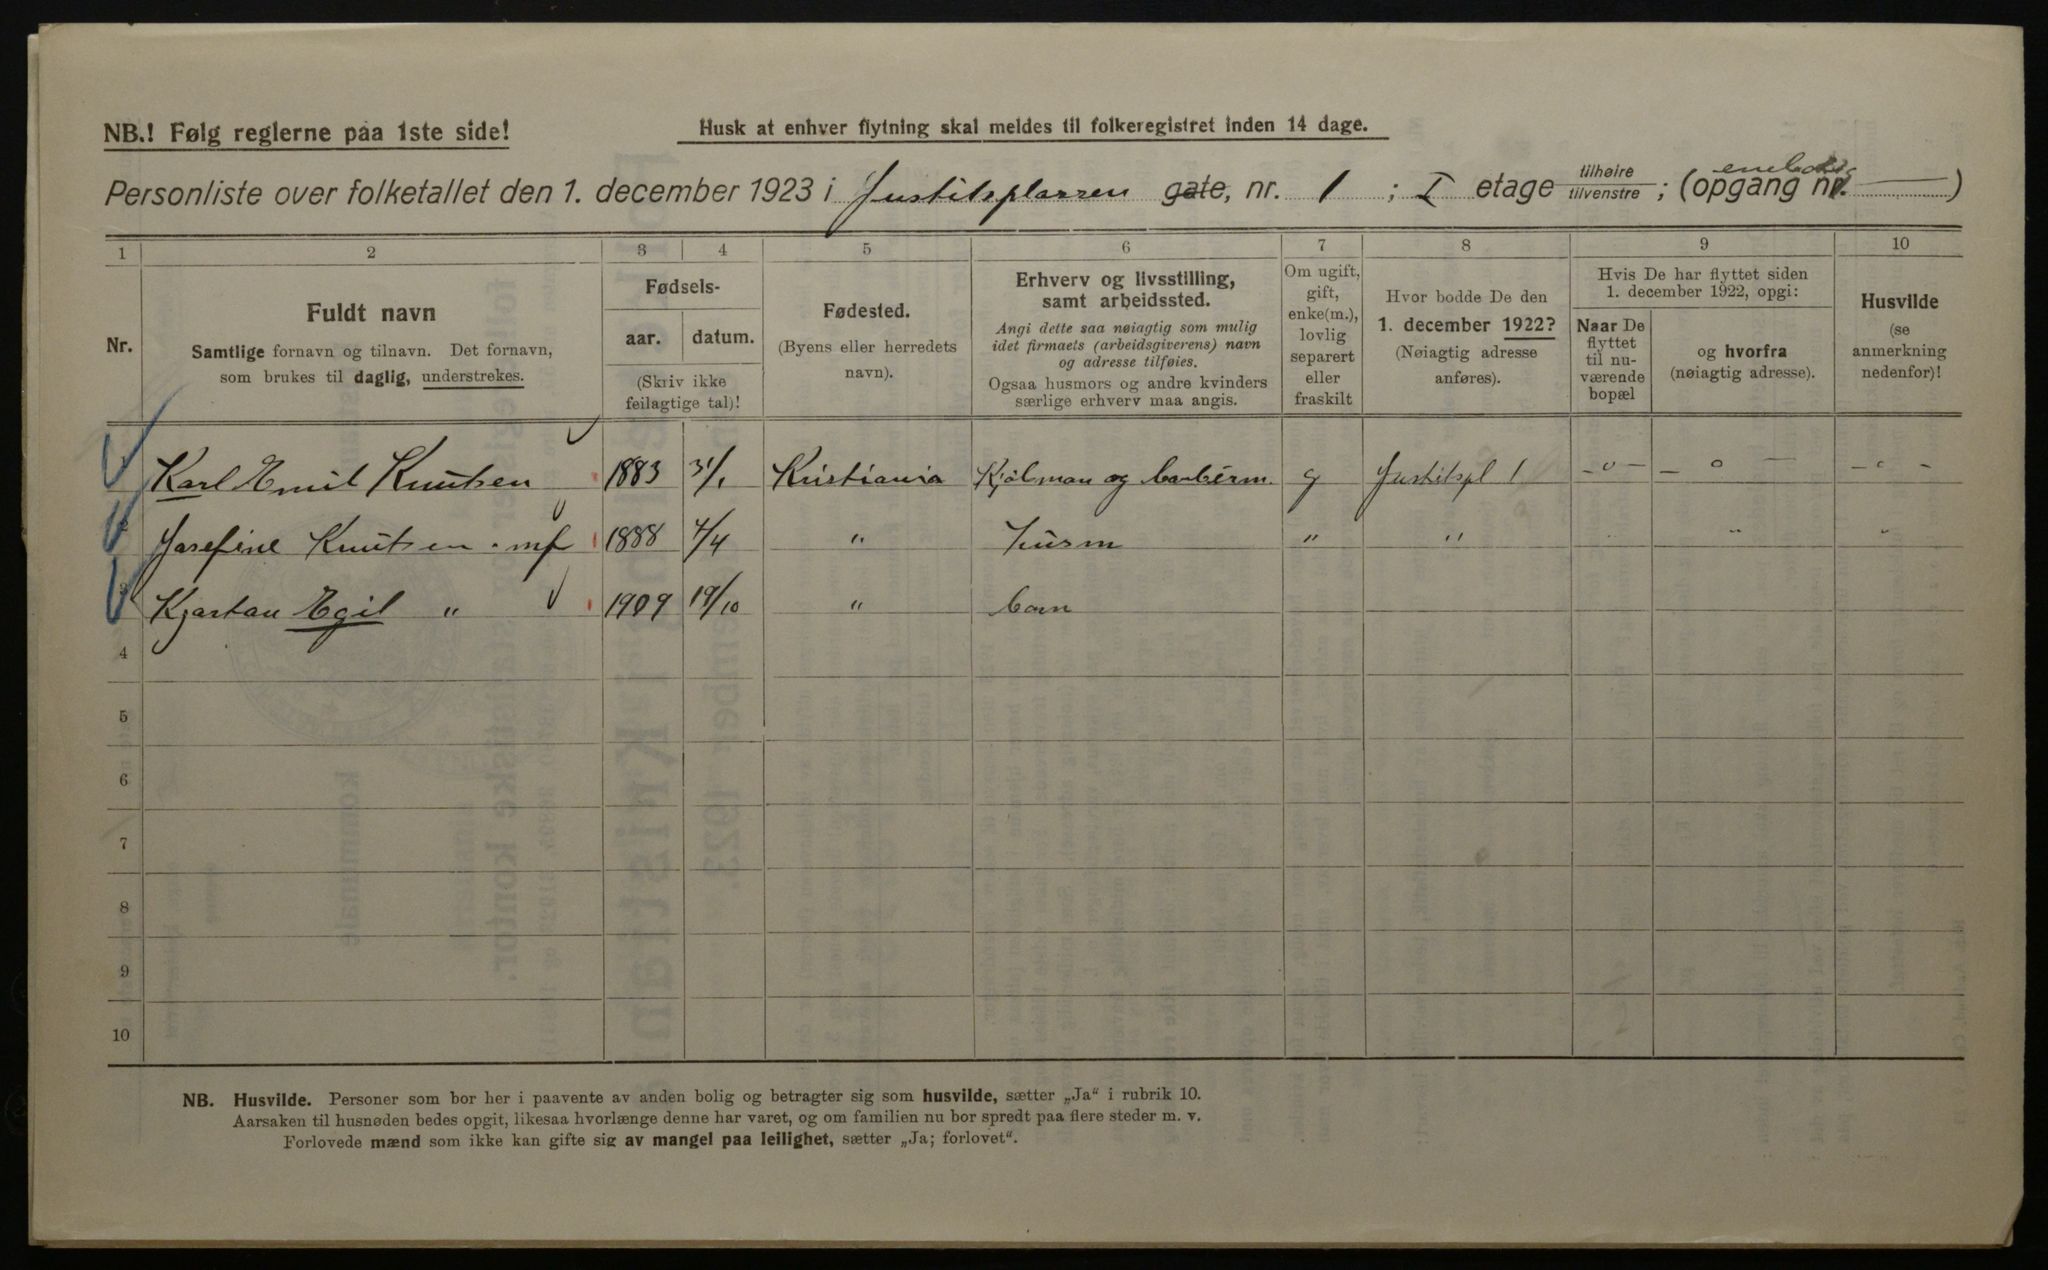 NB.! Følg reglerne paa 1ste side!
Husk at enhver flytning skal meldes til folkeregistret inden 14 dage.
Personliste over folketallet den 1. december 1923 i Justitsplassen gate, nr. 1 ; I etage tilhøire tilvenstre ; (opgang nr. — )
1 2 3 4 5 6 7 8 9 10
Nr.
Fuldt navn
Samtlige fornavn og tilnavn. Det fornavn,
som brukes til daglig, understrekes.
Fødsels-
aar. datum.
(Skriv ikke
feilagtige tal)!
Fødested.
(Byens eller herredets
navn).
Erhverv og livsstilling,
samt arbeidssted.
Angi dette saa nøiagtig som mulig
idet firmaets (arbeidsgiverens) navn
og adresse tilføies.
Ogsaa husmors og andre kvinders
særlige erhverv maa angis.
Om ugift,
gift,
enke(m.),
lovlig
separert
eller
fraskilt
Hvor bodde De den
1. december 1922?
(Nøiagtig adresse
anføres).
Hvis De har flyttet siden
1. december 1922, opgi:
Naar De
flyttet
til nu-
værende
bopæl
og hvorfra
(nøiagtig adresse).
Husvilde
(se
anmerkning
nedenfor)!
Karl Emil Knutsen 1883 31/1 Kristiania og g Justitspl 1 -"- - " - -"-
2 Josefine Knutsen mf 1888 4/4 " Husm " " " "
3 Kjartan Egil " 1909 19/10 " barn
4
5
6
7
8
9
10
NB. Husvilde. Personer som bor her i paavente av anden bolig og betragter sig som husvilde, sætter „Ja“ i rubrik 10.
Aarsaken til husnøden bedes opgit, likesaa hvorlænge denne har varet, og om familien nu bor spredt paa flere steder m. v.
Forlovede mænd som ikke kan gifte sig av mangel paa leilighet, sætter „Ja; forlovet“.